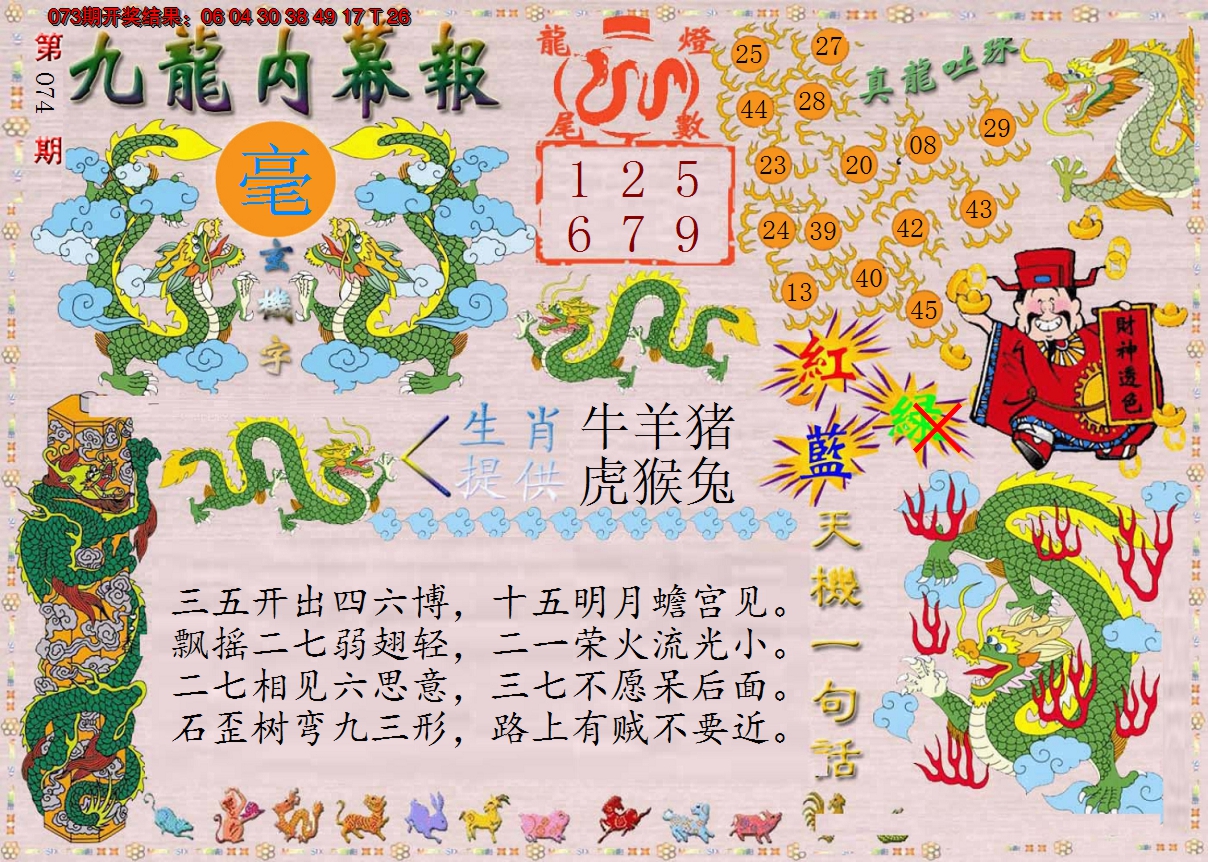 073期开奖结果：06 04 30 38 49 17 T 26
第074期
九龍内幕報
毫
玄機字
龍燈尾數
1 2 5
6 7 9
真龍吐珠
25
27
44
28
08
29
23
20
24
39
42
43
13
40
45
財神透色
紅
綠
藍
生肖提供
牛羊猪
虎猴兔
天機一句话
三五开出四六博，十五明月蟾宫见。
飘摇二七弱翅轻，二一荣火流光小。
二七相见六思意，三七不愿呆后面。
石歪树弯九三形，路上有贼不要近。